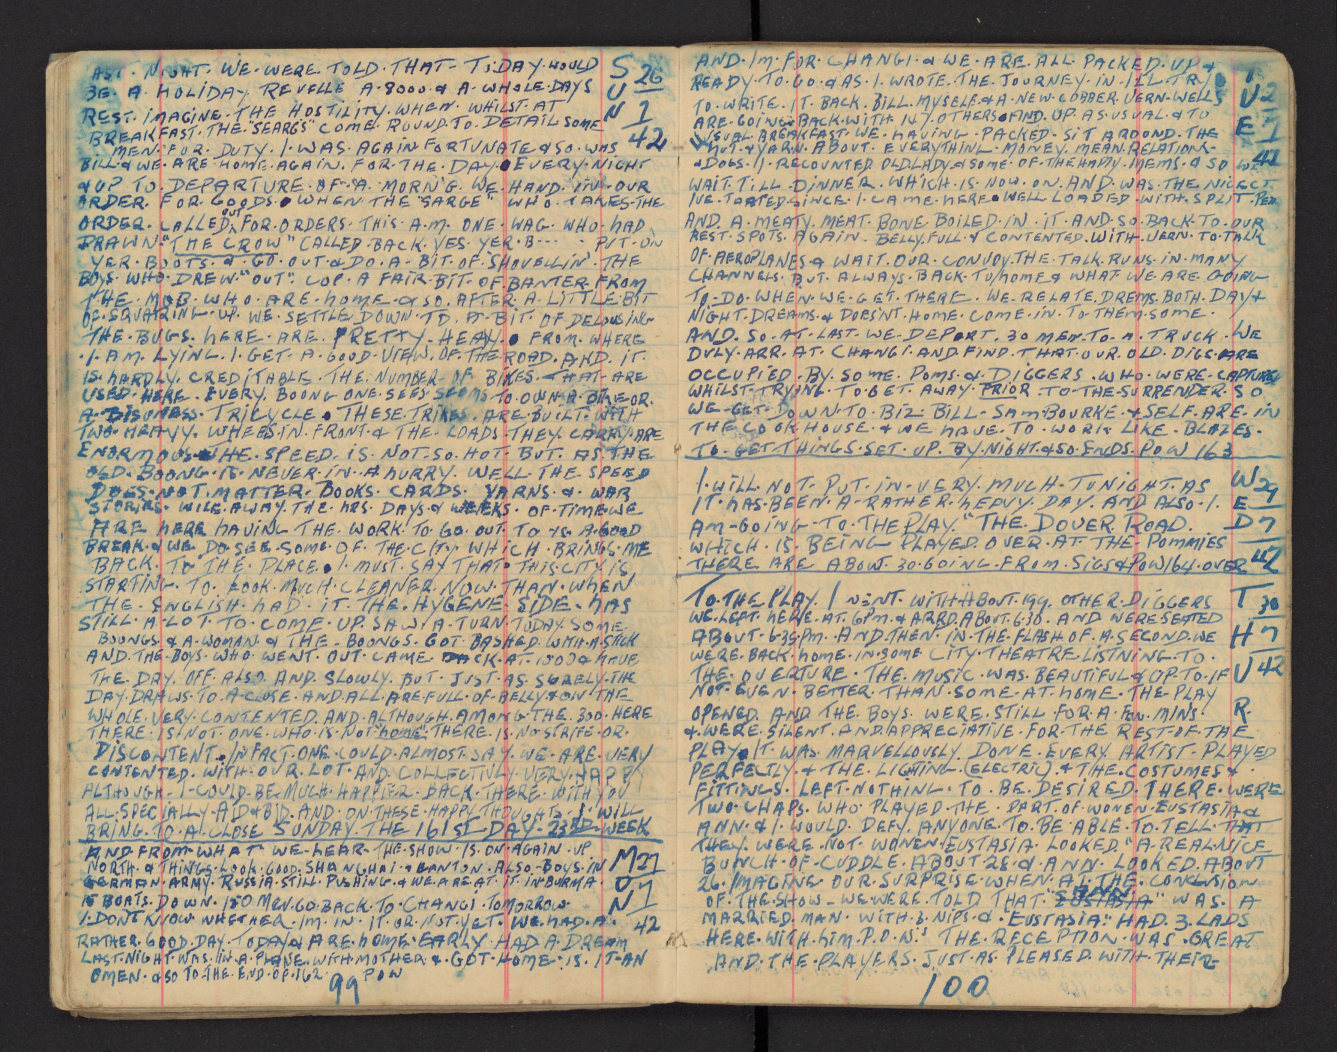 LAST. NIGHT. WE. WERE TOLD. THAT. TODAY WOULD
BE. A. HOLIDAY. REVELLE A.8000. & A. WHOLE. DAYS
REST. IMAGINE. THE HOSTILITY. WHEN. WHILST. AT
BREAKFAST. THE "SEARGS" COME ROUND. TO. DETAIL SOME
MEN. FOR. DUTY. I. WAS. AGAIN FORTUNATE & SO. WAS
BILL & WE. ARE. HOME. AGAIN. FOR. THE. DAY. EVERY. NIGHT
& UP. TO. DEPARTURE. OF. A. MORN'G. WE. HAND. IN. OUR
ORDER. FOR. GOODS. WHEN. THE "SARGE". WHO. TAKES. THE
ORDER. CALLED OUT FOR. ORDERS. THIS. A.M. ONE. WAG. WHO. HAD
DRAWN "THE CROW" CALLED. BACK. YES. YER. B... PUT. ON
YER. BOOTS. & GO. OUT & DO. A. BIT. OF. SHOVELLIN' THE
BOYS. WHO. DREW "OUT". COP. A FAIR. BIT. OF. BANTER. FROM
THE. MOB. WHO. ARE. HOME. & SO. AFTER. A. LITTLE. BIT
OF. SQUARING. UP. WE. SETTLE. DOWN. TO. A. BIT OF DELOUSING
THE. BUGS. HERE. ARE. PRETTY. HEAVY. FROM. WHERE
I. AM. LYING. I. GET. A. GOOD. VIEW. OF. THE ROAD. AND. IT
IS. HARDLY. CREDITABLE. THE. NUMBER. OF. BIKES. THAT. ARE
USED. HERE. EVERY. BOONG ONE. SEES SEEMS TO OWN. A. BIKE. OR.
A. BISINESS. TRICYCLE. THESE. TRIKES. ARE. BUILT. WITH
TWO. HEAVY. WHEES. IN. FRONT. & THE. LOADS. THEY. CARRY. ARE
ENORMOUS. THE. SPEED. IS. NOT. SO. HOT. BUT. AS. THE
OLD. BOONG. IS. NEVER. IN. A. HURRY. WELL. THE SPEED
DOES. NOT. MATTER. BOOKS. CARDS. YARNS. & WAR
STORIES. WILE. AWAY. THE. HRS. DAYS & WEEKS. OF. TIME. WE
ARE HERE HAVING. THE. WORK. TO. GO. OUT. TO. IS. A. GOOD
BREAK. & WE. DO. SEE. SOME. OF. THE. CITY. WHICH. BRINGS. ME
BACK. TO THE. PLACE. I. MUST. SAY THAT. THIS. CITY IS
STARTING. TO. LOOK. MUCH. CLEANER. NOW. THAN. WHEN
THE. ENGLISH. HAD. IT. THE. HYGENE. SIDE. HAS
STILL. A. LOT. TO. COME. UP. SAW. A. TURN. TODAY SOME.
BOONGS. & A. WOMAN. & THE. BOONGS. GOT. BASHED. WITH. A. STICK
AND. THE. BOYS. WHO. WENT. OUT. CAME. BACK. AT. 1500 & HAVE
THE. DAY. OFF. ALSO. AND. SLOWLY. BUT. JUST. AS. SURELY. THE
DAY. DRAWS. TO. A. CLOSE. AND. ALL. ARE. FULL. OF. BELLY & ON. THE
WHOLE. VERY. CONTENTED. AND. ALTHOUGH. AMONG. THE. 300. HERE
THERE. IS. NOT. ONE. WHO. IS. NOT "HOME". THERE. IS. NO. STRIFE. OR.
DISCONTENT. IN FACT. ONE. COULD. ALMOST. SAY. WE. ARE. VERY
CONTENTED. WITH. OUR. LOT. AND. COLLECTIVLY. VERY. HAPPY
ALTHOUGH. I. COULD. BE. MUCH. HAPPIER. BACK. THERE. WITH. YOU
ALL. SPECIALLY. A.D & B.D. AND. ON. THESE. HAPPY. THOUGHTS. I WILL
BRING. TO. A. CLOSE SUNDAY. THE 161ST DAY. 23RD. WEEK
AND. FROM. WHAT WE. HEAR. THE. SHOW. IS. ON. AGAIN. UP
NORTH. & THINGS. LOOK. GOOD. SHANGHAI & CANTON. ALSO. BOYS. IN
GERMAN. ARMY. RUSSIA. STILL. PUSHING. & WE. ARE. AT. IT. IN. BURMA.
15 BOATS. DOWN. 150 MEN. GO. BACK. TO. CHANGI TOMORROW
I. DONT KNOW. WHETHER. I'M. IN. IT. OR. NOT. YET. WE. HAD. A.
RATHER. GOOD. DAY. TODAY & ARE. HOME. EARLY. HAD A. DREAM
LAST. NIGHT. WAS. IN. A. PLANE. WITH. MOTHER. & GOT. HOME. IS. IT. AN
OMEN. & SO. TO. THE. END. OF. 162. POW
99
S 26
U
N 7
42
M 27
O
N 7
42
AND. I'M. FOR. CHANGI. & WE. ARE. ALL. PACKED. UP &
READY. TO. GO. & AS. I. WROTE. THE. JOURNEY. IN. I'LL TRY
TO. WRITE. IT. BACK. BILL. MYSELF. & A. NEW. COBBER. VERN. WELLS
ARE. GOING. BACK. WITH 147. OTHERS. AND. UP. AS. USUAL. & TO
USUAL. BREAKFAST. WE. HAVING. PACKED. SIT AROUND. THE
HUT & YARN. ABOUT. EVERYTHING. MONEY. MEAN. RELATIONS.
& DOGS. I. RECOUNTED. OLD. LADY. & SOME. OF. THE. HAPPY. MEMS. & SO WE
WAIT. TILL. DINNER. WHICH. IS. NOW. ON. AND. WAS. THE. NICEST
I'VE. TASTED. SINCE. I. CAME. HERE. WELL. LOADED. WITH. SPLIT. PEA
AND. A. MEATY. MEAT. BONE. BOILED. IN. IT. AND. SO. BACK. TO. OUR
REST. SPOTS. AGAIN. BELLY. FULL. & CONTENTED. WITH. VERN. TO. TALK
OF. AEROPLANES & WAIT. OUR. CONVOY. THE. TALK. RUNS. IN. MANY
CHANNELS. BUT. ALWAYS. BACK. TO/HOME & WHAT. WE. ARE. GOING
TO. DO. WHEN. WE. GET. THERE. WE. RELATE. DREMS. BOTH. DAY &
NIGHT. DREAMS. & DOESN'T. HOME. COME. IN. TO. THEM. SOME.
AND. SO. AT. LAST. WE. DEPART. 30 MEN. TO. A. TRUCK. WE
DULY. ARR. AT. CHANGI. AND. FIND. THAT. OUR. OLD. DIGS. ARE
OCCUPIED. BY. SOME. POMS. & DIGGERS. WHO. WERE. CAPTURED
WHILST. TRYING. TO. GET. AWAY. PRIOR. TO. THE. SURRENDER. SO
WE. GET. DOWN. TO. BIZ BILL. SAM. BOURKE. & SELF. ARE. IN
THE. COOK HOUSE. & WE HAVE. TO. WORK LIKE. BLAZES.
TO. GET. THINGS. SET. UP. BY. NIGHT. & SO. ENDS. POW 163
I. WILL. NOT. PUT. IN. VERY. MUCH. TONIGHT. AS
IT. HAS. BEEN. A. RATHER. HEAVY. DAY. AND. ALSO. I.
AM. GOING. TO. THE PLAY. "THE. DOVER ROAD.
WHICH. IS. BEING. PLAYED. OVER. AT. THE. POMMIES
THERE ARE ABOUT. 30. GOING. FROM. SIGS & POW 164. OVER
TO. THE PLAY. I WENT. WITH. ABOUT. 199. OTHER. DIGGERS
WE. LEFT. HERE. AT. 6PM. & ARRD. ABOUT. 6.30. AND. WERE SEATED
ABOUT. 6.35PM. AND. THEN. IN. THE. FLASH. OF. A. SECOND. WE
WERE. BACK. HOME. IN. SOME. CITY. THEATRE. LISTNING. TO.
THE. OVERTURE. THE. MUSIC. WAS. BEAUTIFUL. & UP. TO. IF
NOT. EVEN. BETTER. THAN. SOME. AT. HOME. THE. PLAY
OPENED. AND. THE. BOYS. WERE. STILL. FOR. A. FEW. MINS.
& WERE. SILENT. AND. APPRECIATIVE. FOR. THE. REST. OF. THE
PLAY. IT. WAS. MARVELLOUSLY. DONE. EVERY. ARTIST. PLAYED
PERFECTLY. & THE. LIGHTING. (ELECTRIC). & THE. COSTUMES &
FITTINGS. LEFT. NOTHING. TO. BE. DESIRED. THERE. WERE
TWO. CHAPS. WHO. PLAYED. THE. PART. OF. WOMEN. EUSTASIA &
ANN. & I. WOULD. DEFY. ANYONE. TO. BE. ABLE. TO. TELL. THAT
THEY. WERE. NOT. WOMEN. EUSTASIA. LOOKED. "A. REAL. NICE
BUNCH. OF. CUDDLE. ABOUT. 28. & ANN. LOOKED. ABOUT
26. IMAGINE. OUR. SURPRISE. WHEN. AT. THE. CONCLUSION
OF. THE. SHOW. WE. WERE. TOLD THAT. "ANN" WAS. A
MARRIED. MAN. WITH. 3. NIPS. & "EUSTASIA" HAD. 3. LADS
HERE. WITH. HIM. P.O.W.'S THE. RECEPTION. WAS. GREAT
AND. THE. PLAYERS. JUST. AS. PLEASED. WITH. THEIR
100
U 28
E 7
42
W 29
E
D 7
42
T 30
H 7
U 42
R